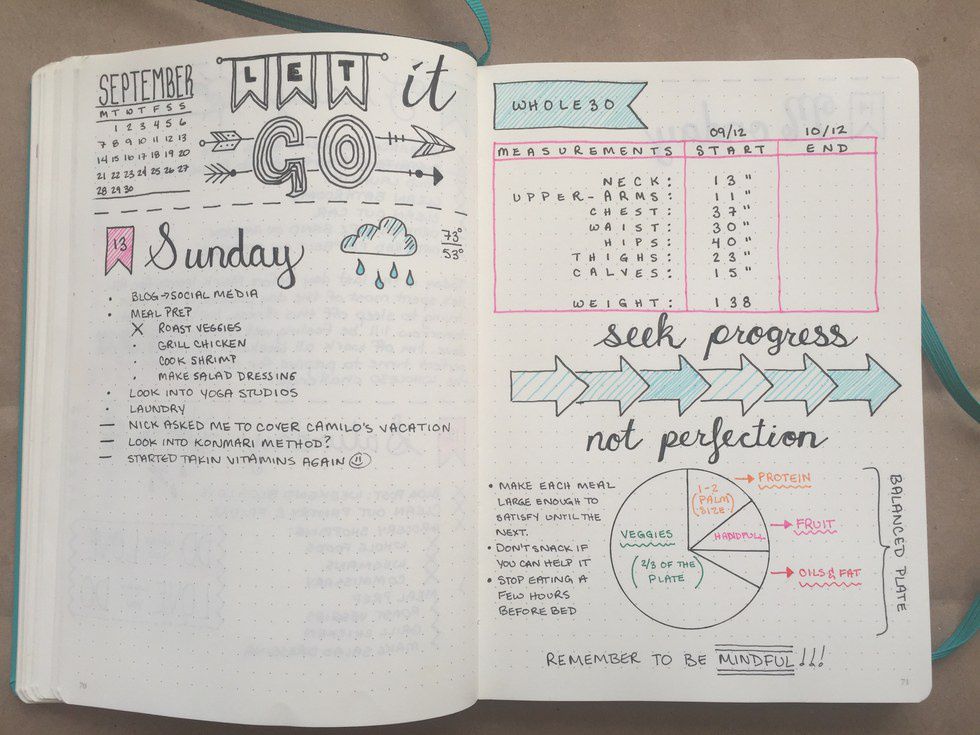 SEPTEMBER
M T W T F S S
1 2 3 4 5 6
7 8 9 10 11 12 13
14 15 16 17 18 19 20
21 22 23 24 25 26 27
28 29 30
LET it
GO
13 Sunday
73°
53°
• BLOG → SOCIAL MEDIA
• MEAL PREP
X ROAST VEGGIES
• GRILL CHICKEN
• COOK SHRIMP
• MAKE SALAD DRESSING
• LOOK INTO YOGA STUDIOS
• LAUNDRY
— NICK ASKED ME TO COVER CAMILO'S VACATION
— LOOK INTO KONMARI METHOD?
— STARTED TAKIN VITAMINS AGAIN ☺
70
WHOLE30
09/12 10/12
MEASUREMENTS START END
NECK: 13"
UPPER-ARMS: 11"
CHEST: 37"
WAIST: 30"
HIPS: 40"
THIGHS: 23"
CALVES: 15"
WEIGHT: 138
seek progress
not perfection
• MAKE EACH MEAL
LARGE ENOUGH TO
SATISFY UNTIL THE
NEXT.
• DON'T SNACK IF
YOU CAN HELP IT
• STOP EATING A
FEW HOURS
BEFORE BED
1-2
(PALM)
SIZE
→ PROTEIN
VEGGIES
(2/3 OF THE
PLATE)
HADIDFULL
→ FRUIT
→ OILS & FAT
BALANCED PLATE
REMEMBER TO BE MINDFUL!!!
71